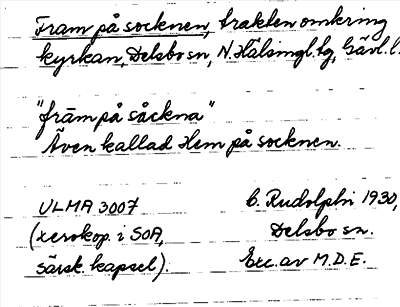 Fram på socknen, trakten omkring
kyrkan, Delsbo sn, N. Hälsingl. tg, Gävl. l.
"frām på såckna"
Även kallad Hem på socknen.
ULMA 3007
(xerokop. i SOA,
särsk. kapsel).
C. Rudolphi 1930,
Delsbo sn.
Exc. av M.D.E.